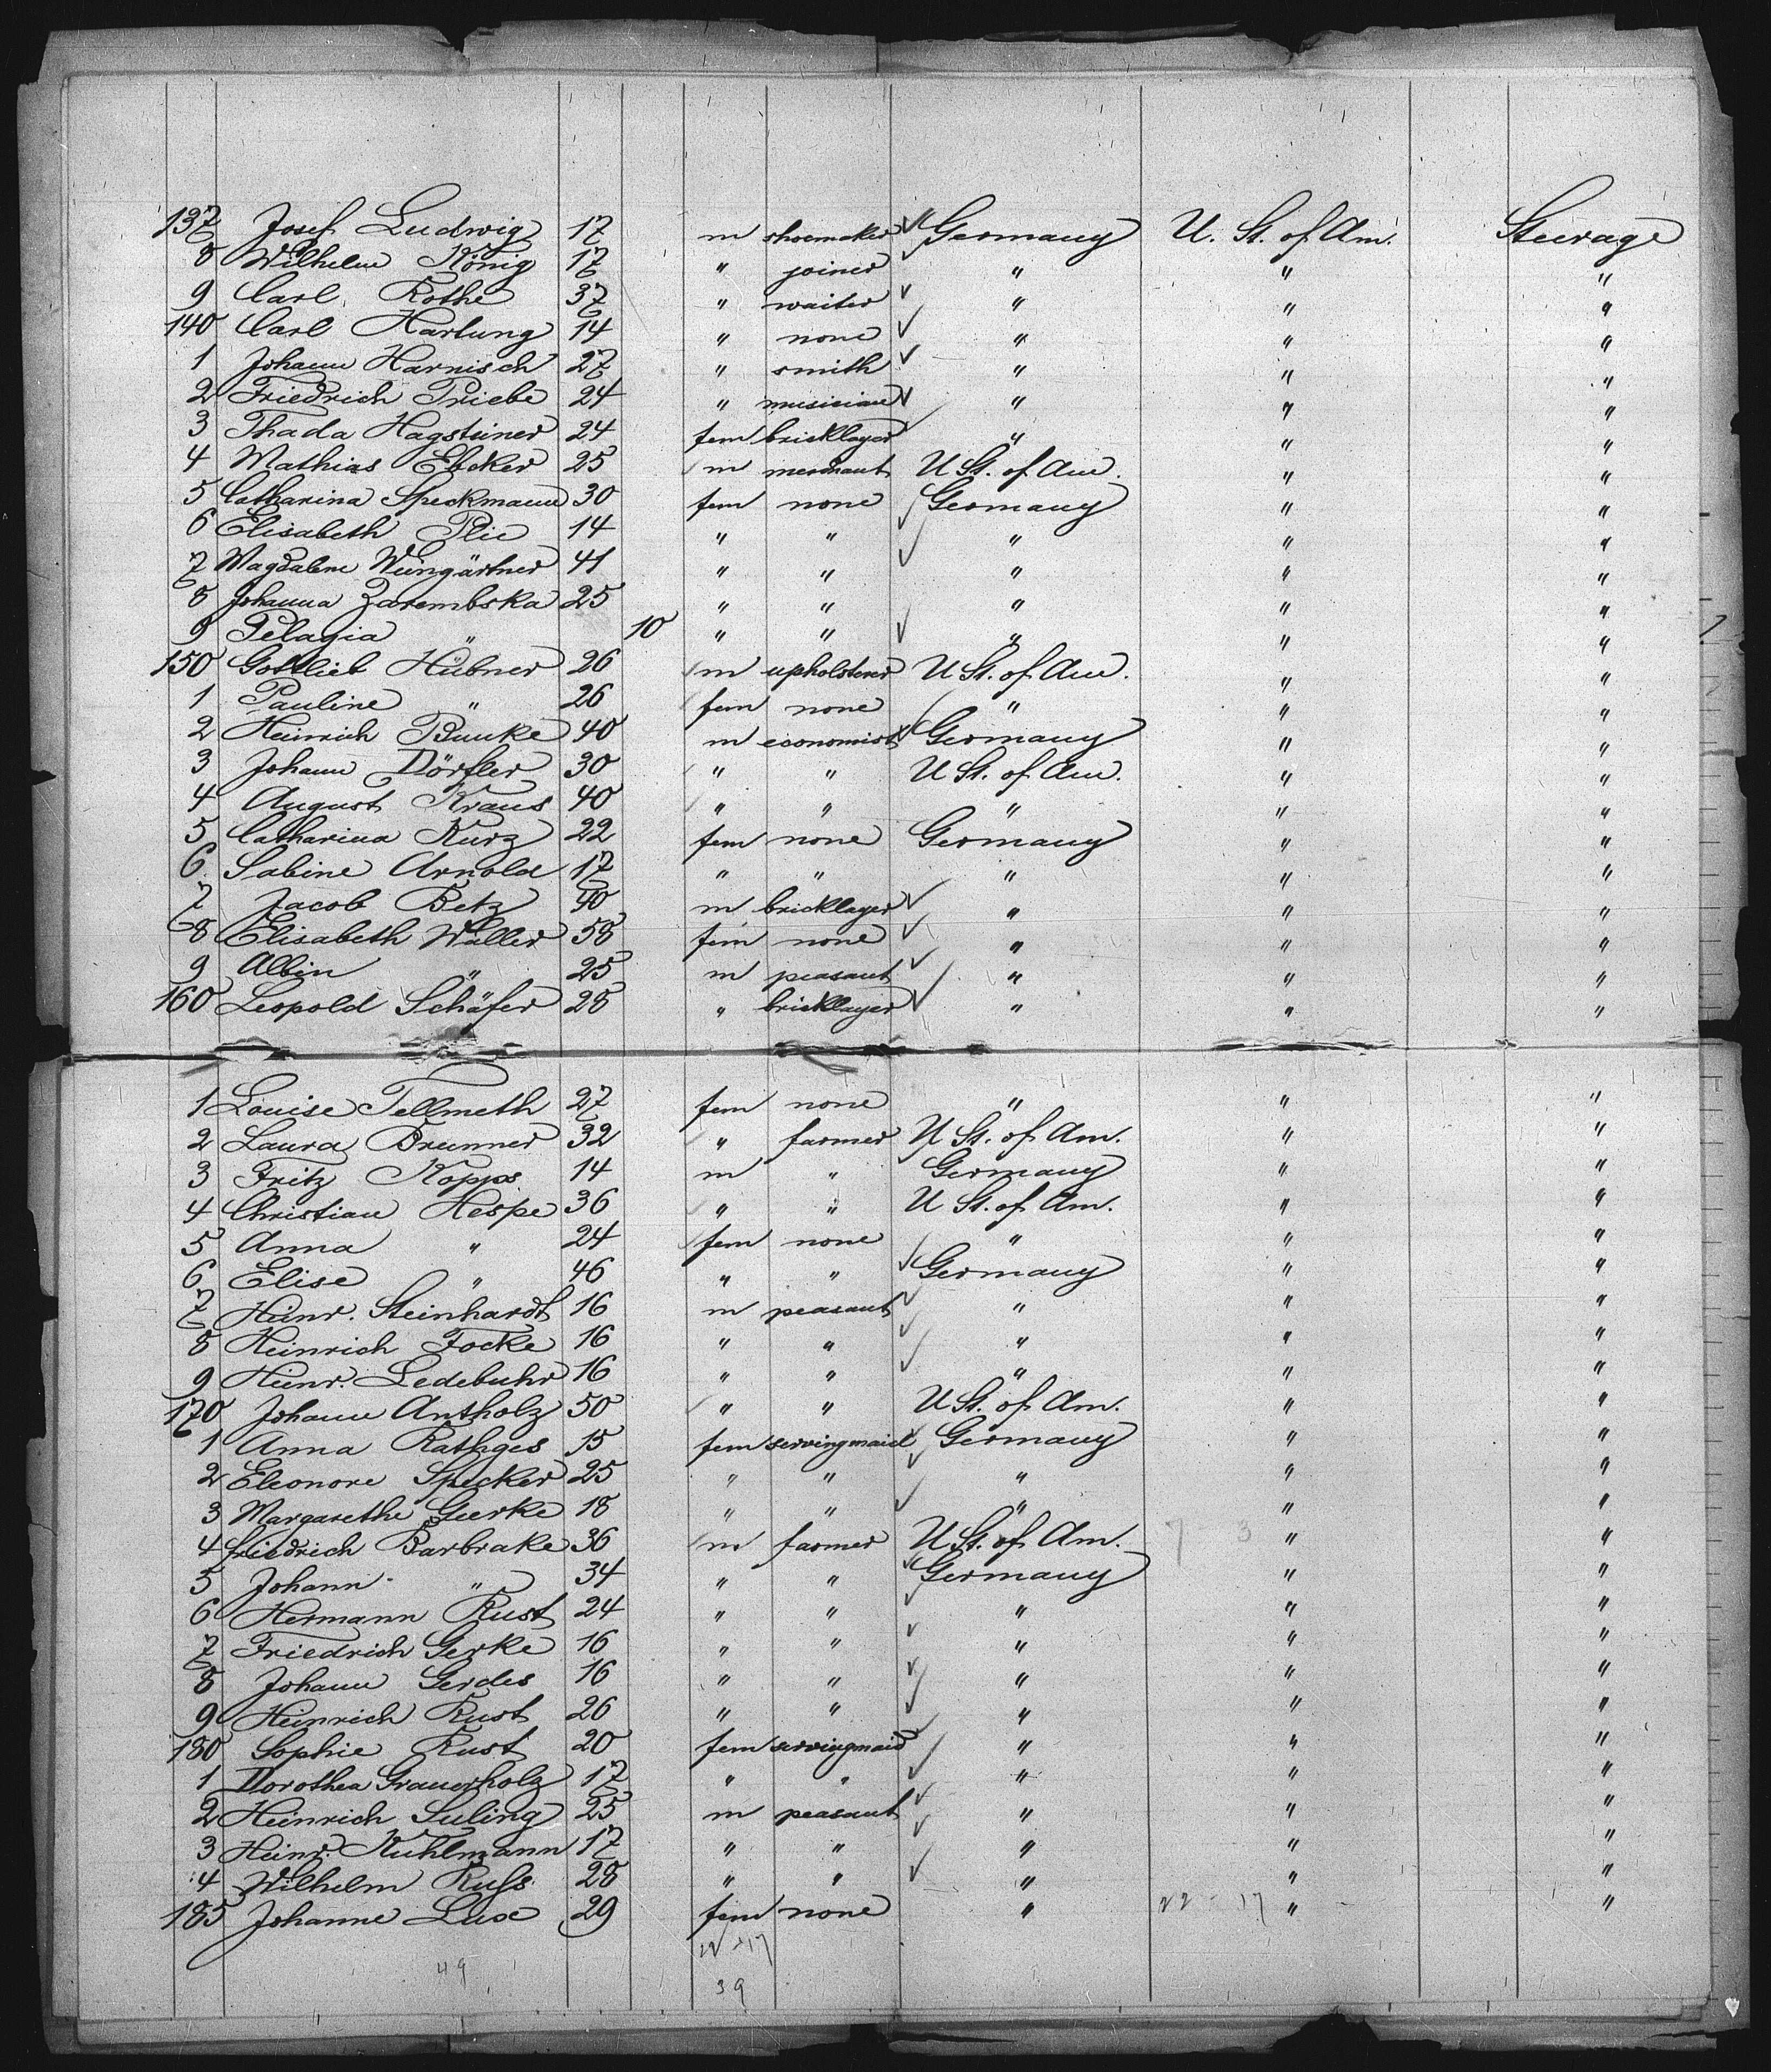 137 Josef Ludwig 17 m shoemaker Germany U. St. of Am. Steerage
8 Wilhelm König 17 " joiner " " "
9 Carl Rothe 37 " waiter " " "
140 Carl Hartung 14 " none " " "
1 Johann Harnisch 27 " smith " " "
2 Friedrich Priebe 24 " musician " " "
3 Thada Hagsteiner 24 fem bricklayer " " "
4 Mathias Ebcker 25 m merchant U St. of Am. " "
5 Catharina Speckmann 30 fem none Germany " "
6 Elisabeth Plic 14 " " " " "
7 Magdalene Weingärtner 41 " " " " "
8 Johanna Zarembska 25 " " " " "
9 Pelagia " 10 " " " " "
150 Gottlieb Hübner 26 m upholsterer U St. of Am. " "
1 Pauline " 26 fem none " " "
2 Heinrich Buuke 40 m economist Germany " "
3 Johann Dörfler 30 " " U St. of Am. " "
4 August Kraus 40 " " " " "
5 Catharina Kurz 22 fem none Germany " "
6 Sabine Arnold 17 " " " " "
7 Jacob Betz 40 m bricklayer " " "
8 Elisabeth Waller 58 fem none " " "
9 Albin " 25 m peasant " " "
160 Leopold Schäfer 28 " bricklayer " " "
1 Louise Tellmeth 27 fem none " " "
2 Laura Brunner 32 " farmer U St. of Am. " "
3 Fritz Kopps 14 m " Germany " "
4 Christian Hespe 36 " " U St. of Am. " "
5 Anna " 24 fem none " " "
6 Elise " 46 " " Germany " "
7 Heinr. Steinhardt 16 m peasant " " "
8 Heinrich Focke 16 " " " " "
9 Heinr. Ledebuhr 16 " " " " "
170 Johann Antholz 50 " " U St. of Am. " "
1 Anna Rathges 15 fem servingmaid Germany " "
2 Eleonore Specker 25 " " " " "
3 Margarethe Geerke 18 " " " " "
4 Friedrich Barbrake 36 m farmer U. St. of Am. 7 3 " "
5 Johann " 34 " " Germany " "
6 Hermann Rust 24 " " " " "
7 Friedrich Gerke 16 " " " " "
8 Johann Gerdes 16 " " " " "
9 Heinrich Rust 26 " " " " "
180 Sophie Rust 20 fem servingmaid " " "
1 Dorothea Grauerholz 17 " " " " "
2 Heinrich Suling 25 m peasant " " "
3 Heinr. Kuhlmann 17 " " " " "
4 Wilhelm Ruß 28 " " " " "
185 Johanne Luse 29 fem none " 22 - 17 " "
22 17
49 39